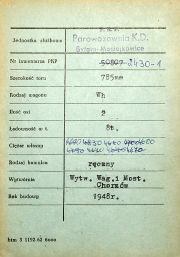 P.K.P.
Jednostka służbowa
Parowozownia K.D.
Bytom-Maciejkowice
Nr inwentarza PKP 2430-1
Szerokość toru 785mm
Rodzaj wagonu Wh
Ilość osi 2
Ładowność w t. 8t.
Ciężar własny
Rodzaj hamulca ręczny
Wytwórnia Wytw. Wag. i Most.
Chorzów
Rok budowy 1948r.